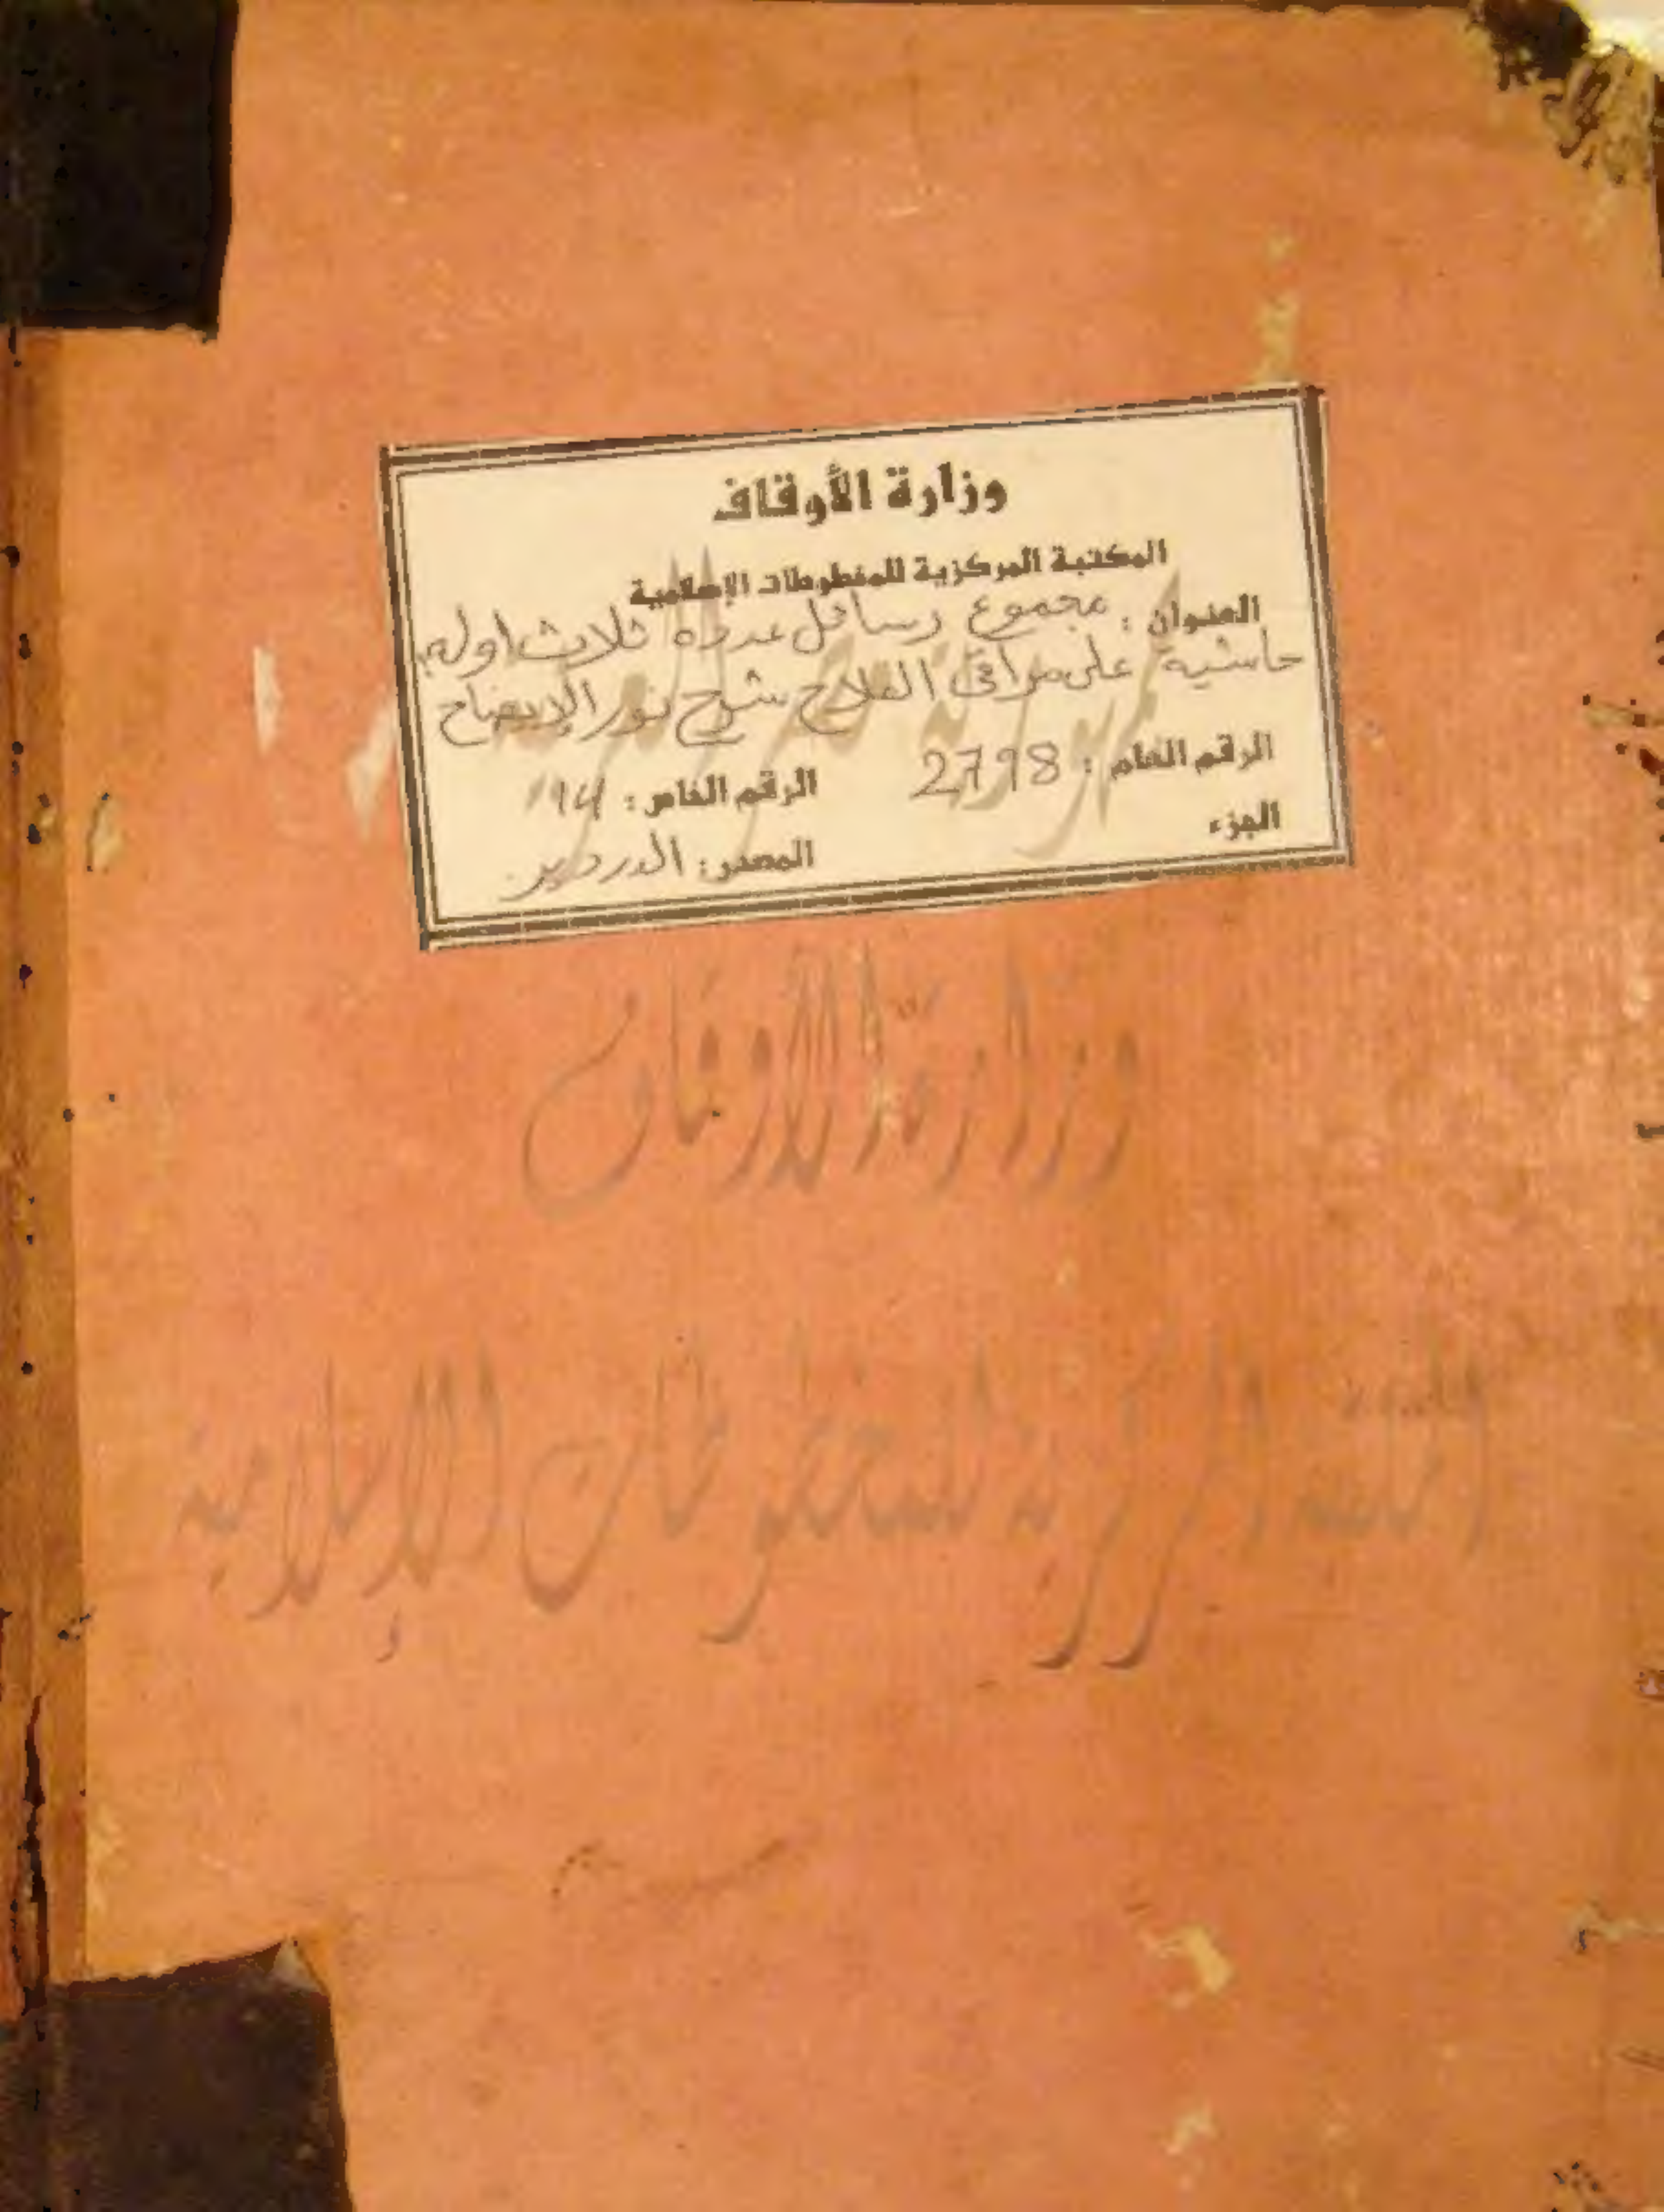 وزارة الأوقاف
المكتبة المركزية للمخطوطات الإسلامية
العنوان : مجموع رسائل عدده ثلاث اوله
حاشية على مراقى الفلاح شرح نور الإيضاح
الرقم العام : 2798
الرقم الخاص : 94
الجزء
المصدر : الدردير
وزارة الأوقاف
المكتبة المركزية للمخطوطات الإسلامية